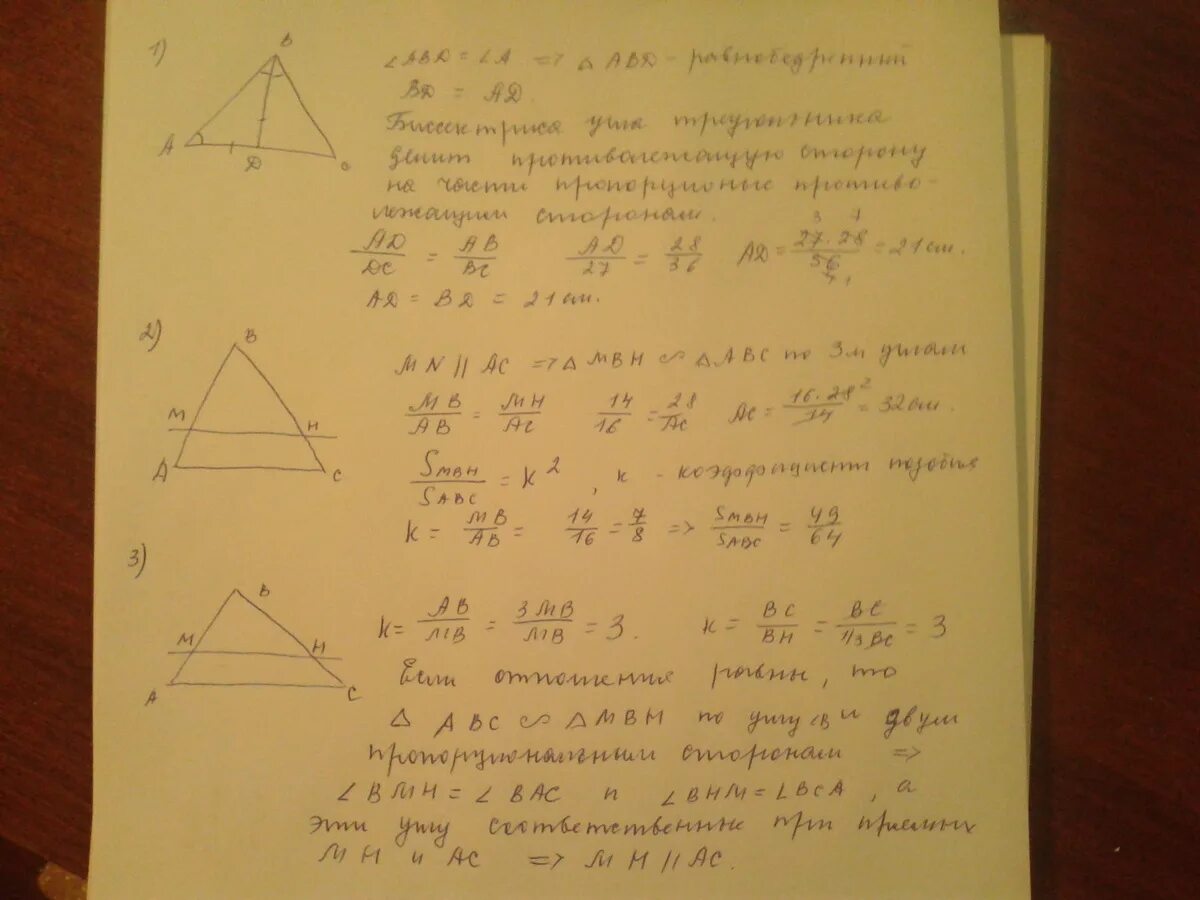 1)
B
A
D
C
∠ABD = ∠A => △ABD - равнобедренный
BD = AD.
Биссектриса угла треугольника
делит противолежащую сторону
на части пропорционые противо-
лежащим сторонам.
AD/DC = AB/BC AD/27 = 28/36 AD = 27·28/56 = 21 см.
AD = BD = 21 см.
2)
B
M
H
A
C
MN || AC => △MBH ∽ △ABC по 3м углам
MB/AB = MH/AC 14/16 = 28/AC AC = 16·28/14 = 32 см.
S MBH/S ABC = K², к - коэффициент подобия
K = MB/AB = 14/16 = 7/8 => S MBH/S ABC = 49/64
3)
B
M
H
A
C
K = AB/MB = 3MB/MB = 3. K = BC/BH = BC/1/3 BC = 3
Если отношения равны, то
△ABC ∽ △MBH по углу ∠B и двум
пропорциональным сторонам =>
∠BMH = ∠BAC и ∠BHM = ∠BCA, а
эти углы соответственные при прямых
MH и AC => MH || AC.